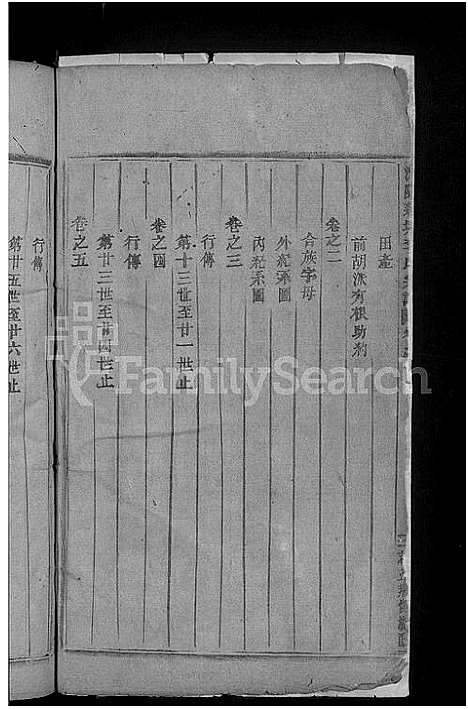 田產
前胡派有根助約
卷之二
合族字母
外紀系圖
內紀系圖
卷之三
行傳
第十三世至廿一世止
卷之四
行傳
第廿三世至廿四世止
卷之五
行傳
第廿五世至廿六世止
FamilySearch